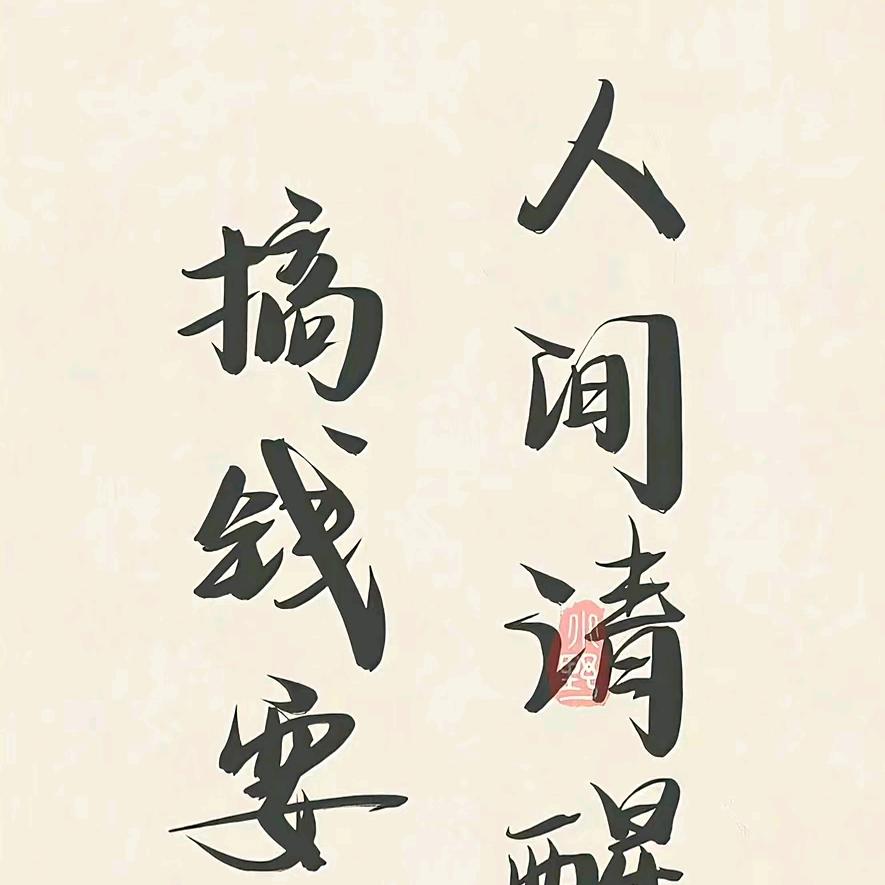 人间清醒
搞钱要